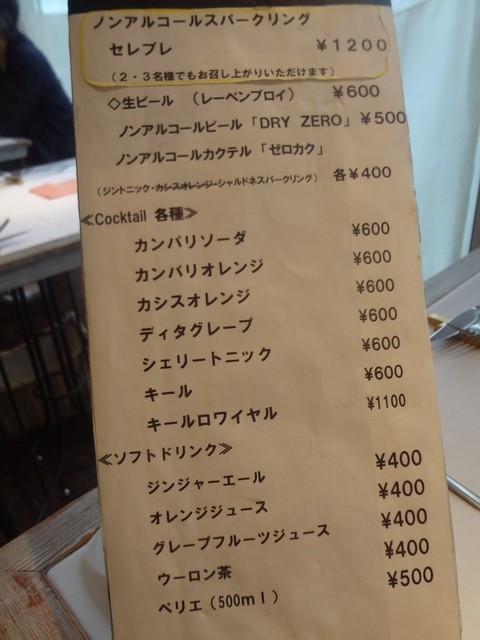 ノンアルコールスパークリング
セレブレ ￥1200
（２・３名様でもお召し上がりいただけます）
◇生ビール （レーベンブロイ） ￥600
ノンアルコールビール「DRY ZERO」 ￥500
ノンアルコールカクテル「ゼロカク」
（ジントニック・カシスオレンジ・シャルドネスパークリング） 各￥400
≪Cocktail 各種≫
カンパリソーダ ¥600
カンパリオレンジ ¥600
カシスオレンジ ¥600
ディタグレープ ¥600
シェリートニック ¥600
キール ¥600
キールロワイヤル ¥1100
≪ソフトドリンク≫
ジンジャーエール ¥400
オレンジジュース ¥400
グレープフルーツジュース ¥400
ウーロン茶 ¥400
ペリエ（500ｍｌ） ¥500